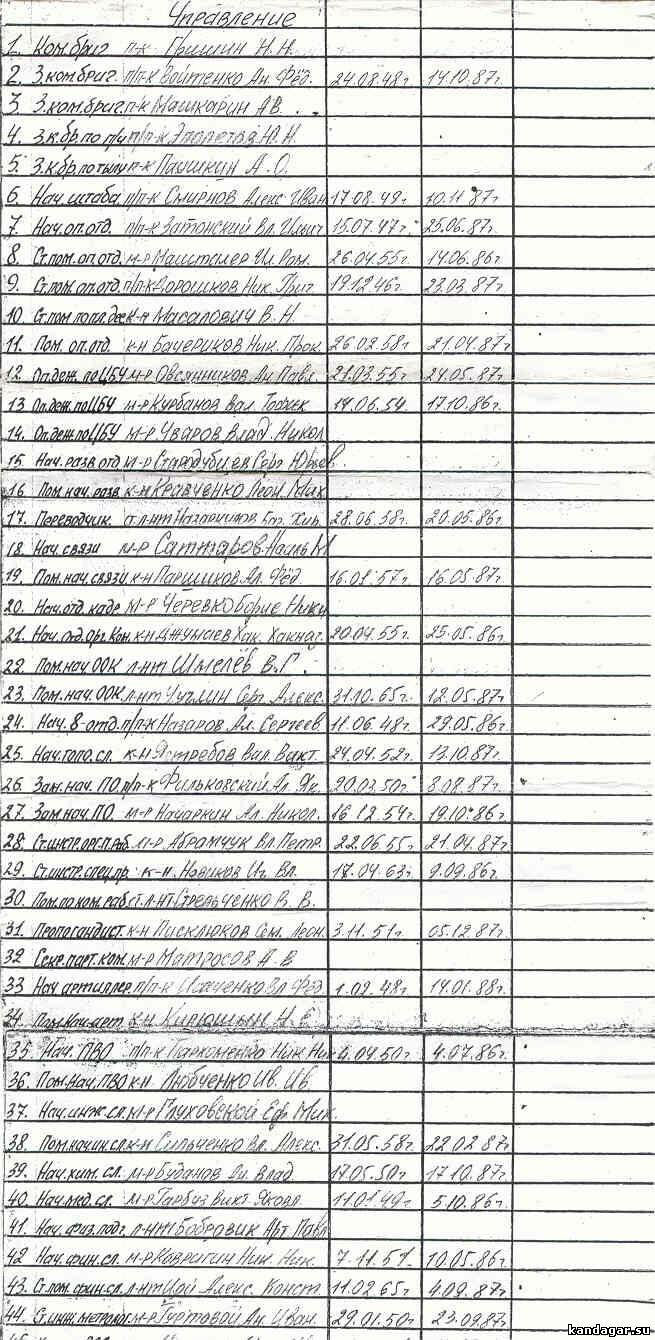 Управление
1. Ком. бриг п-к Гришин Н.Н.
2. З.ком.бриг. п/п-к Войтенко Ан. Фёд. 24.08.48г 14.10.87г.
3. З.ком.бриг. п-к Машкарин А.В.
4. З.к.бр. по п/ч п/п-к Ю.Н.
5. З.к.бр. по тылу п-к Паушкин А.О.
6. Нач. штаба п/п-к Смирнов Алекс. Иван 17.08.49г. 10.11.87г.
7. Нач. оп. отд. п/п-к Затонский Вл. Ильич 15.07.47г. 25.06.87г.
8. Ст. пом. оп. отд. м-р Ром. 26.04.55г. 14.06.86г.
9. Ст. пом. оп. отд. п/п-к Дорошков Ник. Григ 19.12.46г. 23.03.87г.
10. Ст. пом. к-н Масалович В.Н.
11. Пом. оп. отд. к-н Бачериков Ник. Прок. 26.02.58г 21.04.87г.
12. Оп. деж. по ЦБУ м-р Овсянников Ан. Павл. 21.03.55г. 24.05.87г.
13. Оп. деж. по ЦБУ м-р Курбанов Вал. 14.06.54. 17.10.86г.
14. Оп. деж. по ЦБУ м-р Уваров Влад. Никол
15. Нач. разв. отд. м-р Стародубцев Серг Юрьев.
16. Пом. нач. разв. к-н Кравченко Леон. Мих.
17. Переводчик ст. л-нт 28.06.58г. 20.05.86г.
18. Нач. связи м-р Саттаров Наиль М
19. Пом. нач. связи к-н Паршиков Ал. Фёд. 16.01.57г. 16.05.87г.
20. Нач. отд. кадр. м-р Черевко Борис Ники
21. Нач. отд. орг. к-н Джунаев Хак. 20.04.55г. 25.05.86г.
22. Пом. нач. ООК л-нт Шмелёв В.Г.
23. Пом. нач. ООК л-нт Чучмин Серг. Алекс. 31.10.65г. 12.05.87г.
24. Нач. 8-отд. п/п-к Назаров Ал. Сергеев. 11.06.48г. 29.05.86г.
25. Нач. топо. сл. к-н Ястребов Вал. Викт. 24.04.52г. 13.10.87г.
26. Зам. нач. ПО п/п-к Фильковский Ал. Як. 20.03.50г. 8.08.87г.
27. Зам. нач. ПО. м-р Начаркин Ал. Никол. 16.12.54г. 19.10.86г
28. Ст. инстр. орг. п. раб. м-р Абрамчук Вл. Петр. 22.06.55г. 21.04.87г.
29. Ст. инстр. спец. пр. к-н. Новиков Иг. Вл. 17.04.63г. 9.09.86г.
30. Пом. по ком. раб. ст. л-нт Стрельченко В. В.
31. Пропагандист. к-н Писклюков Сем. Леон. 3.11.51г. 05.12.87г.
32. Секр. парт. ком. м-р Матросов А.В
33. Нач артиллер. п/п-к Исаченко Вл Фед. 1.02.48г. 14.01.88г.
34. Пом. нач. арт. к-н Кирюшин Н.Е
35. Нач. ПВО п/п-к Пархоменко Ник Ник 4.04.50г. 4.07.86г.
36. Пом. нач. ПВО к-н Любченко Ив. Ив.
37. Нач. инж. сл. м-р Глуховской Еф. Мих.
38. Пом. нач. ин. сл. к-н Сильченко Вл. Алекс. 31.05.58г. 22.02.87г
39. Нач. хим. сл. м-р Буданов Ан. Влад. 17.05.50г. 17.10.87г.
40. Нач. мед. сл. м-р Гарбуз Викт. Яковл. 11.01.49г. 5.10.86г.
41. Нач. физ. подг. л-нт Бобровик Арт Павл
42. Нач. фин. сл. м-р Ковригин Ник. Ник. 7.11.51. 10.05.86г.
43. Ст. пом. фин. сл. л-нт Цой Алекс. Конст. 11.02.65г. 4.09.87г.
44. Ст. инж. метролог м-р Гуртовой Ан. Иван. 29.01.50г. 23.09.87г
kandagar.su